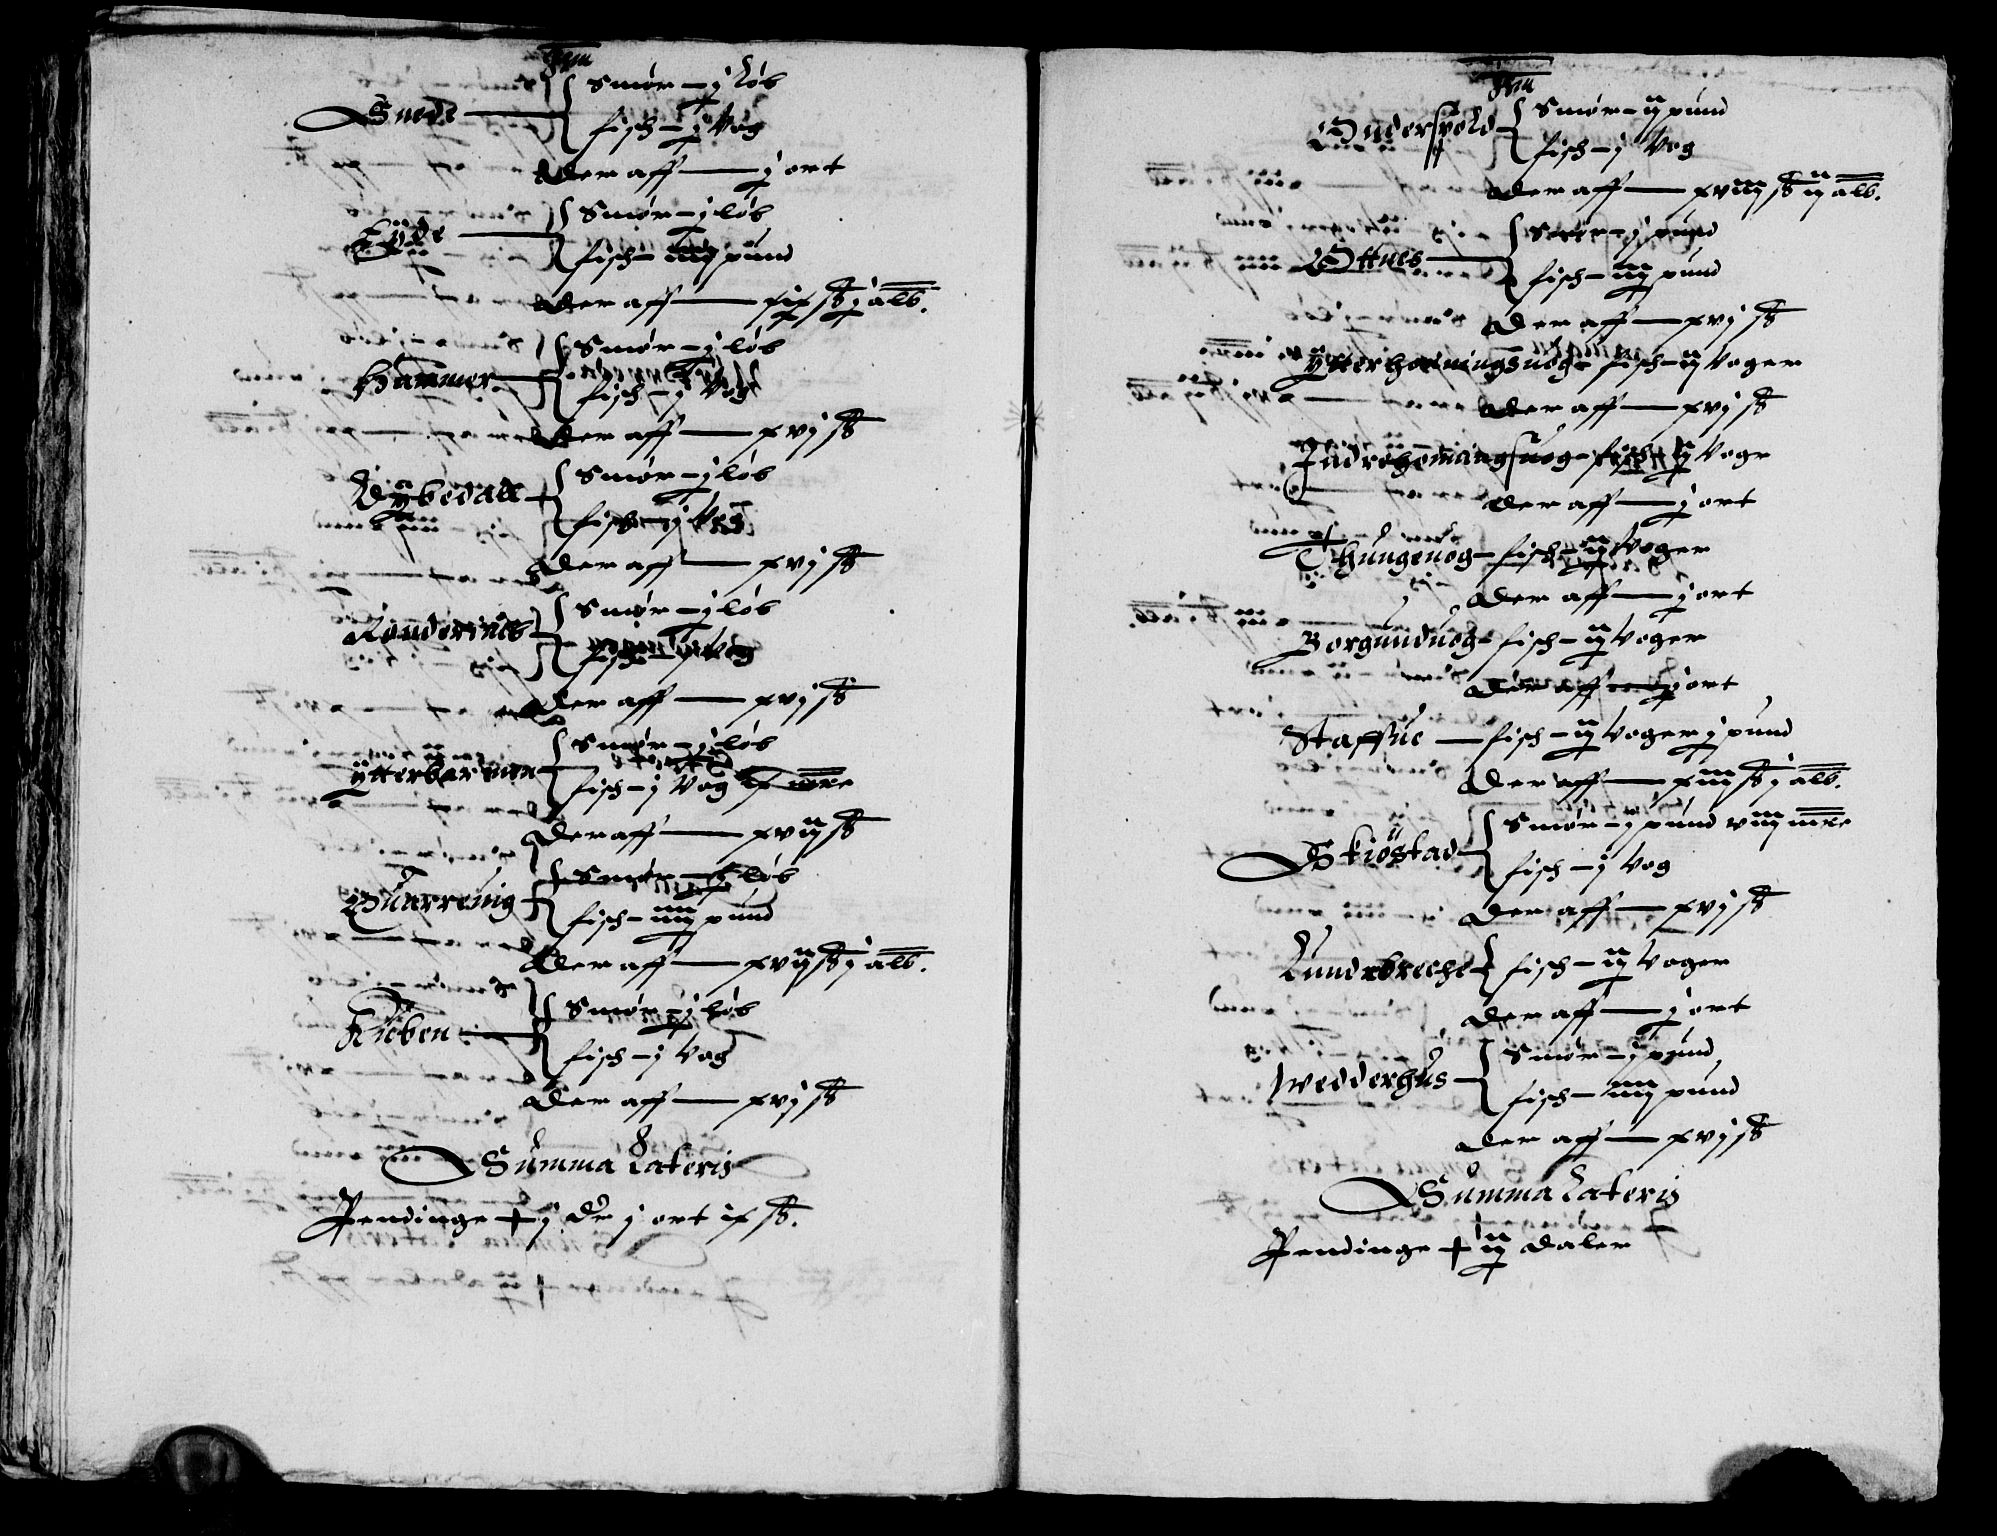 Snede — Smør – j løb
fisch – j Vog
der aff — j ort
Eÿde — Smør – j løb
fisch – iiij pund
der aff — xix ß j alb.
Hammer – Smør – j løb
fisch – j Vog
der aff — xvj ß
Dÿbedall – Smør – j løb
fisch – j Vog
der aff — xvj ß
Rønderines – Smør – j løb
fisch – j Vog
der aff — xvj ß
Ÿtterbørmen – Smør – j løb
fisch – j Vog ix mre
der aff — xvij ß
Quarreuig – Smør – j løb
fisch – iiij pund
der aff — xvij ß j alb.
Kieben — Smør – j løb
fisch – j Vog
der aff — xvj ß
Summa Lateris
Pendinge + j dr j ort ix ß.
Smør – ij pund
fisch – j Vog
der aff — xviij ß ij alb.
Ottnes — Smør – j pund
fisch – iiij pund
der aff — xvj ß
Ÿtterhorningsuog – fisch – ij Voger
der aff — xvj ß
Indrehorningsuog – fisch – ij Voge
der aff — j ort
Thungeuog – fisch – ij Voger
der aff — j ort
Borgunduog – fisch – ij Voger
der aff — j ort
Staffue — fisch – ij Voger j pund
der aff — xiiij ß j alb.
Skiöstad – Smør – j pund viij mre
fisch – j Vog
der aff — xvj ß
Lundrbreche – fisch – ij Voger
der aff — j ort
Wedderhus – Smør – j pund
fisch – iiij pund
der aff — xvj ß
Summa Lateris
Pendinge + ij daler